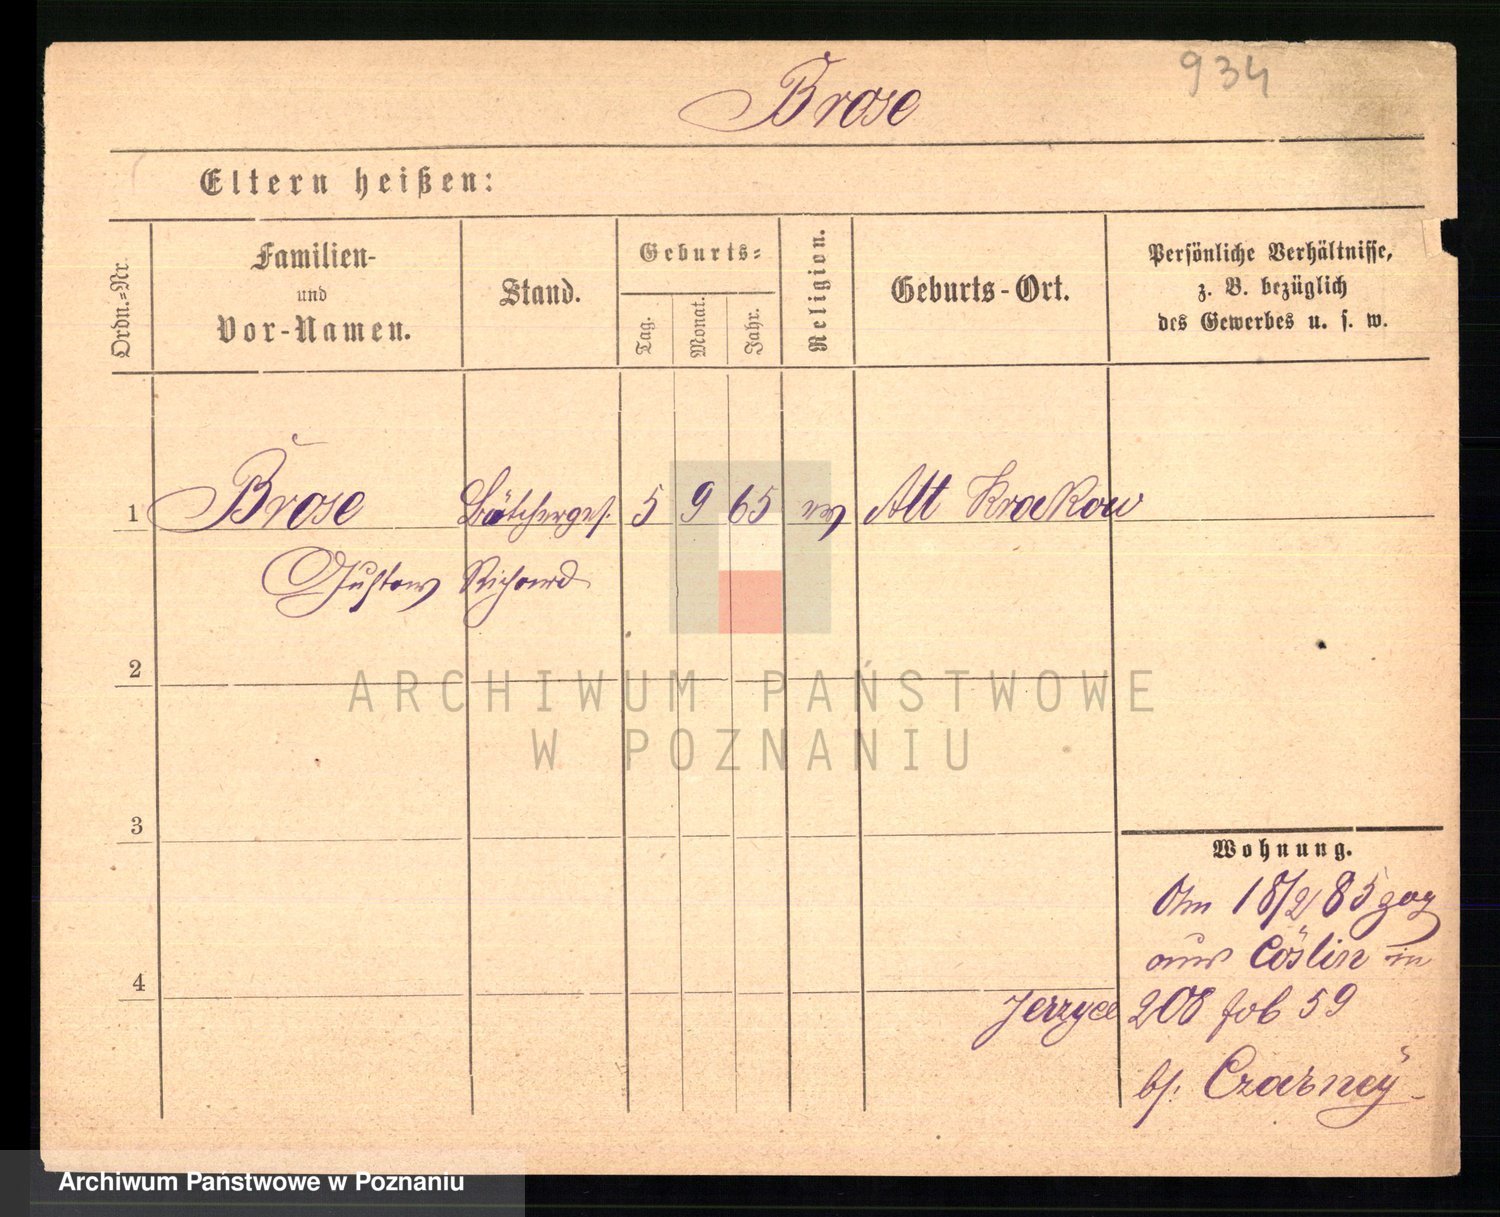 Brose
934
Eltern heißen:
Ordn.=Nr.
Familien-
und
Vor-Namen.
Stand.
Geburts=
Tag.
Monat.
Jahr.
Religion.
Geburts-Ort.
Persönliche Verhältnisse,
z. B. bezüglich
des Gewerbes u. s. w.
1 Brose Böttcherges. 5 9 65 ev Alt Krakow
Gustav Richard
2
3
4
ARCHIWUM PAŃSTWOWE
W POZNANIU
Wohnung.
Am 18/2 85 zog
aus Cöslin in
Jerzyce 208 59
bs. Czarney
Archiwum Państwowe w Poznaniu